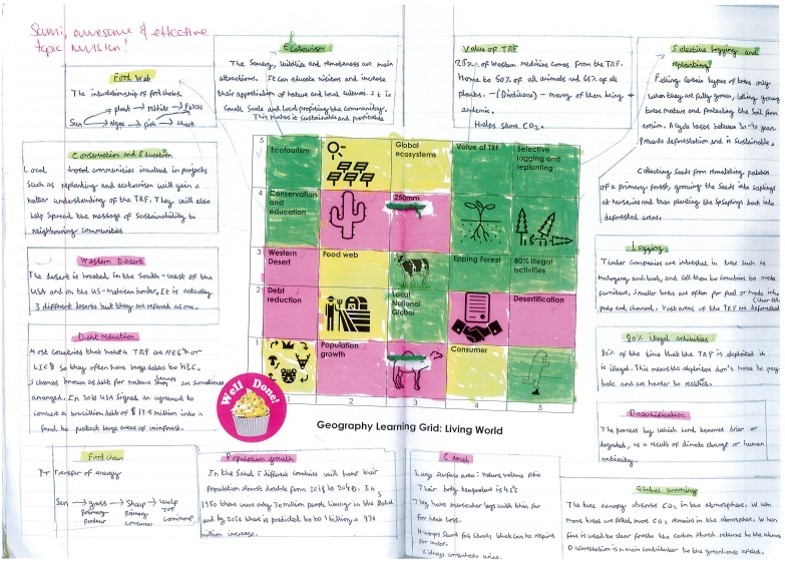 Sumi, awesome & effective
topic revision!
Food Web
The interrelationship of food chains
plant → rabbits → foxes
Sun
algae → fish → shark
Ecotourism
The Scenery, wildlife and remoteness are main
attractions. It can educate visitors and increase
their appreciation of nature and local cultures. It is
Small Scale and local profiting the community.
This makes it sustainable and profitable
Value of TRF
25% of western medicine comes from the TRF.
Home to 50% of all animals and 65% of all
plants. - (Biodiverse) - many of them being
endemic.
Helps store CO2.
Selective logging and
replanting
Felling certain types of trees only
when they are fully grown, letting young
trees mature and protecting the soil from
erosion. A cycle lasts between 30-40 years.
Prevents deforestation and is sustainable.
Collecting seeds from remaining patches
of a primary forest, growing the seeds into saplings
at nurseries and then planting the saplings back into
deforested areas.
Conservation and Education
Local based communities involved in projects
such as replanting and ecotourism will gain a
better understanding of the TRF. They will also
help spread the message of sustainability to
neighbouring communities
Western Desert
The desert is located in the South-west of the
USA and on the US-Mexican border. It is actually
3 different deserts but they are referred as one.
Debt reduction
Most countries that have a TRF are NEE's or
LIC's so they often have large debts to HIC.
Schemes known as debt for nature swaps are sometimes
arranged. In 2010 USA signed an agreement to
convert a Brazilian debt of $13.5 million into a
fund to protect large areas of rainforest.
5
Ecotourism
Global
ecosystems
Value of TRF
Selective
logging and
replanting
4
Conservation
and
education
250mm
3
Western
Desert
Food web
Epping Forest
80% illegal
activities
2
Debt
reduction
Local
National
Global
Desertification
1
Population
growth
Consumer
1
2
3
4
5
Geography Learning Grid: Living World
Well Done!
Logging
Timber companies are interested in trees such as
mahogany and teak, and sell them to countries to make
furniture. Smaller trees are often for fuel or made into
pulp and charcoal. Vast areas of the TRF are deforested
80% illegal activities
80% of the time that the TRF is exploited it
is illegal. This means the exploiters don't have to pay
Desertification
The process by which land becomes drier or
degraded, as a result of climate change or human
activity.
Food chain
Transfer of energy
Sun → grass → Sheep → Wolf
Primary
Producer
Primary
consumer
TOP
Carnivore
Population growth
In the Sahel 5 different countries will have their
population almost double from 2018 to 2040. In
1950 there were only 30 million people living in the Sahel
million increase.
Camel
Large surface area: volume ratio
They have muscular legs with thin fur
for heat loss.
Humps store fat stores which can be respired
for water.
Kidneys concentrate urine.
Global warming
The tree canopy absorbs CO2 in the atmosphere. When
more trees are felled more CO2 remains in the atmosphere. When
fire is used to clear forests the carbon stored returns to the atmos
Deforestation is a main contributor to the greenhouse effect.